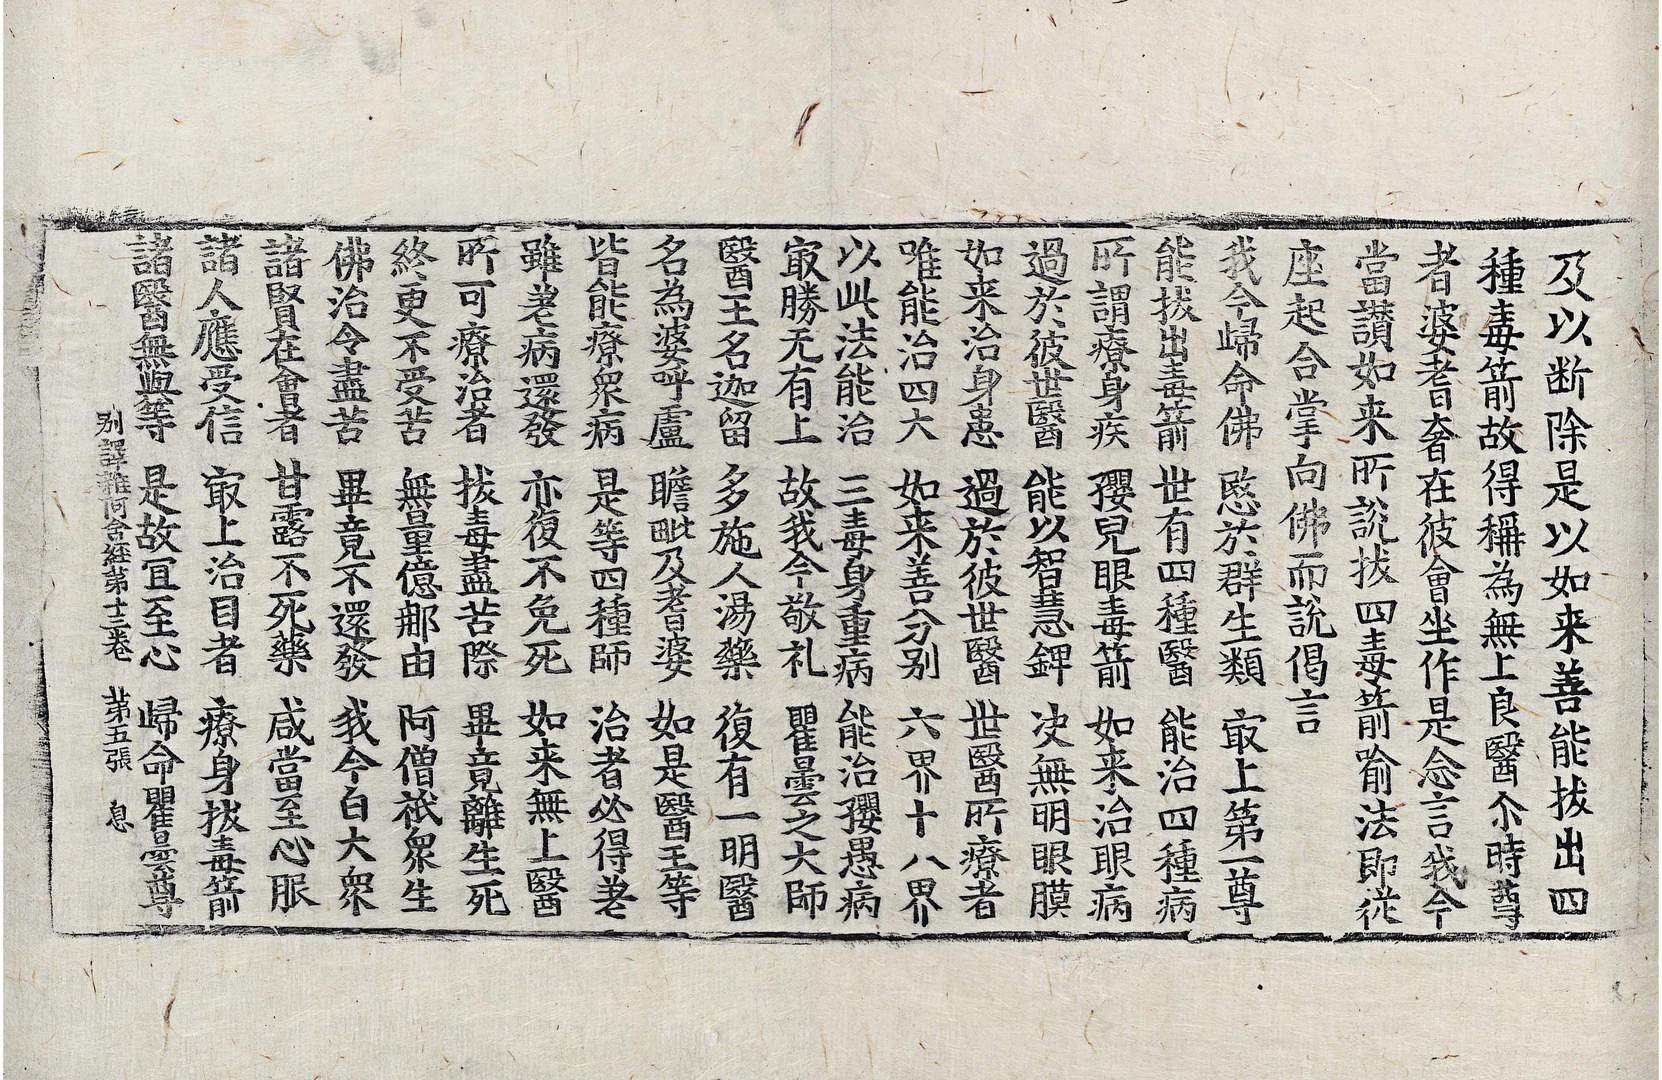 及以断除是以如来善能拔出四
種毒箭故得稱為無上良醫尒時尊
者婆耆奢在彼會坐作是念言我今
當讃如来所說拔四毒箭喻法即從
座起合掌向佛而說偈言
我今歸命佛　愍於群生類　㝡上第一尊
能拔出毒箭　世有四種醫　能治四種病
所謂療身疾　孾兒眼毒箭　如来治眼病
過於彼世醫　能以智慧錍　决無明眼膜
如来治身患　過於彼世醫　世醫所療者
唯能治四大　如来善分別　六界十八界
以此法能治　三毒身重病　能治孾愚病
㝡勝无有上　故我今敬礼　瞿曇之大師
醫王名迦留　多施人湯藥　復有一明醫
名為婆呼盧　瞻毗及耆婆　如是醫王等
皆能療衆病　是等四種師　治者必得差
雖差病還發　亦復不免死　如来無上醫
所可療治者　拔毒盡苦際　畢竟離生死
終更不受苦　無量億那由　阿僧祇衆生
佛治令盡苦　畢竟不還發　我今白大衆
諸賢在會者　甘露不死藥　咸當至心服
諸人應受信　㝡上治目者　療身拔毒箭
諸醫無與等　是故冝至心　歸命瞿曇尊
別譯雜阿含經苐十三卷　苐五張　息